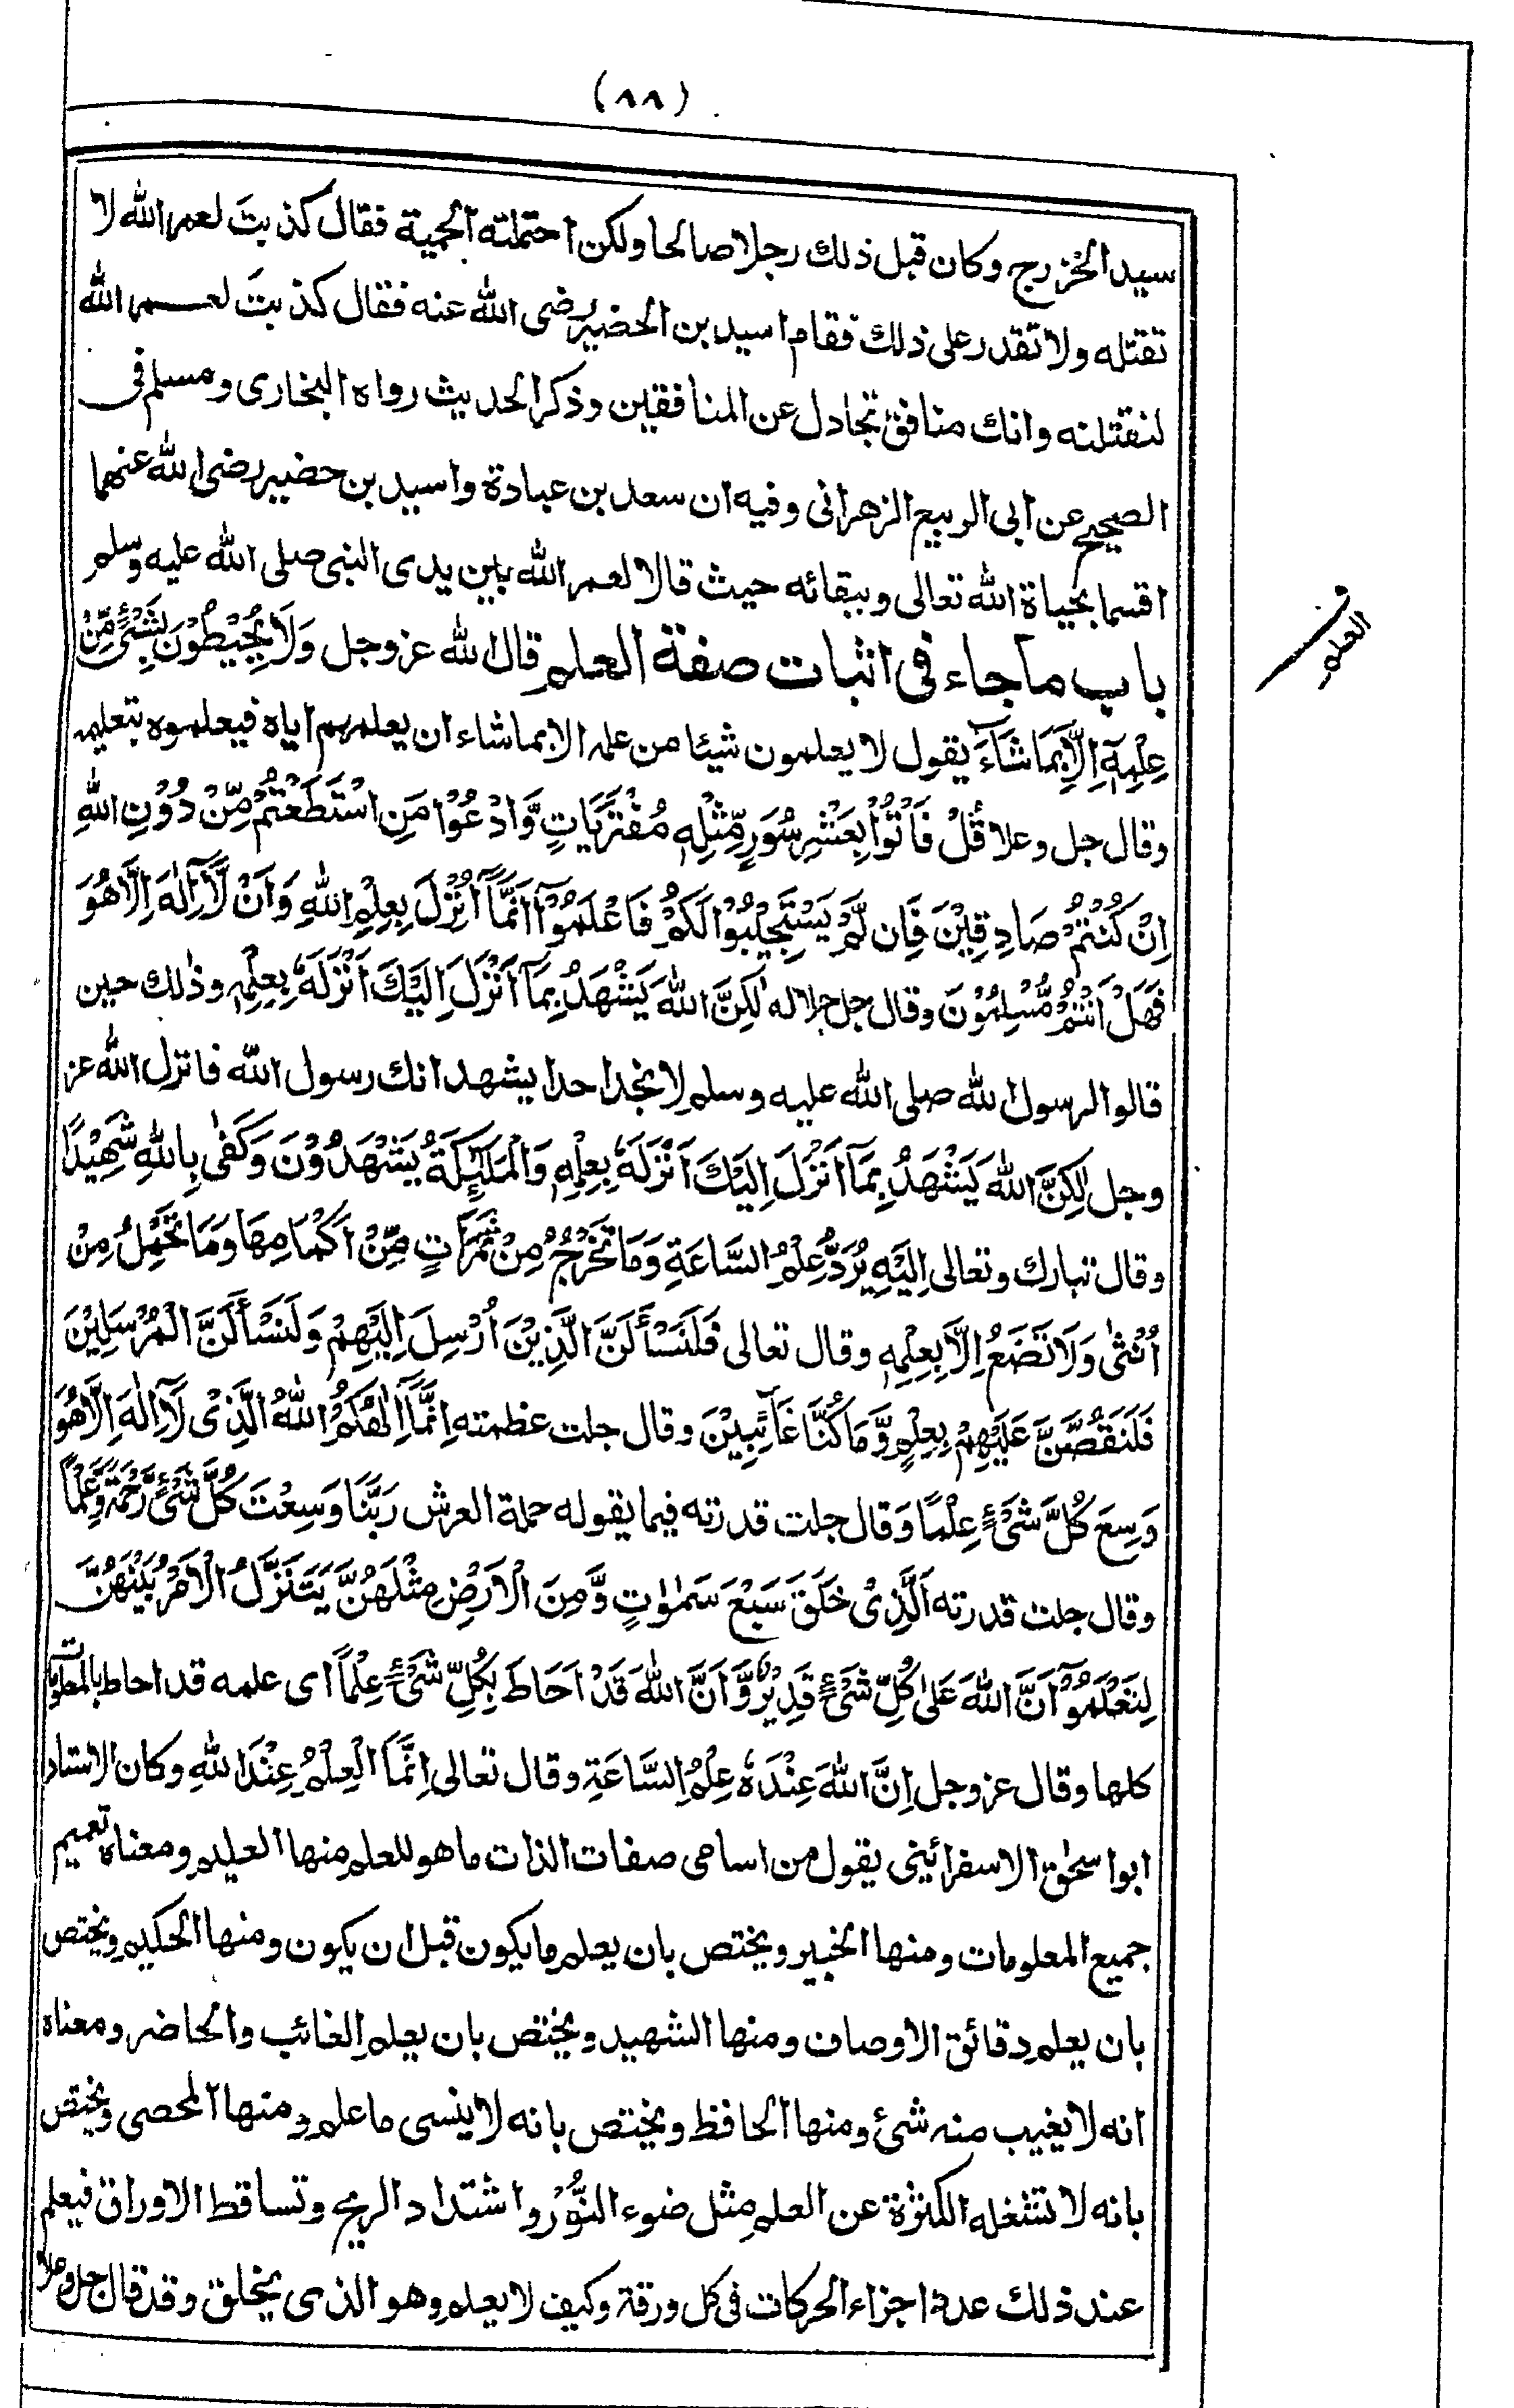 (٨٨)
سيد الخزرج وكان قبل ذلك رجلا صالحا ولكن احتملته الحمية فقال كذبتَ لعمر الله لا
تقتله ولا تقدر على ذلك فقام اسيد بن الحضير رضى الله عنه فقال كذبتَ لعمر الله
لنقتلنه وانك منافق تجادل عن المنافقين وذكر الحديث رواه البخارى ومسلم فى
الصحيح عن ابى الربيع الزهرانى وفيه ان سعد بن عبادة واسيد بن حضير رضى الله عنهما
اقسما بحياة الله تعالى وببقائه حيث قالا لعمر الله بين يدى النبى صلى الله عليه وسلم
باب ما جاء فى اثبات صفة العلم قال الله عز وجل وَلَا يُحِيْطُوْنَ بِشَيْءٍ مِّنْ
ف العلم
عِلْمِهٖ اِلَّا بِمَا شَآءَ يقول لا يعلمون شيئا من علمه الا بما شاء ان يعلمهم اياه فيعلموه بتعليمه
وقال جل وعلا قُلْ فَاْتُوْا بِعَشْرِ سُوَرٍ مِّثْلِهٖ مُفْتَرَيَاتٍ وَّادْعُوْا مَنِ اسْتَطَعْتُمْ مِّنْ دُوْنِ اللهِ
اِنْ كُنْتُمْ صَادِقِيْنَ فَاِن لَّمْ يَسْتَجِيْبُوْا لَكُمْ فَاعْلَمُوْآ اَنَّمَآ اُنْزِلَ بِعِلْمِ اللهِ وَاَنْ لَّآ اِلٰهَ اِلَّا هُوَ
فَهَلْ اَنْتُمْ مُّسْلِمُوْنَ وقال جل جلاله لٰكِنَّ اللهَ يَشْهَدُ بِمَآ اَنْزَلَ اِلَيْكَ اَنْزَلَهٗ بِعِلْمِهٖ وذٰلك حين
قالوا لرسول الله صلى الله عليه وسلم لا نجد احدا يشهد انك رسول الله فانزل الله عز
وجل لٰكِنَّ اللهَ يَشْهَدُ بِمَآ اَنْزَلَ اِلَيْكَ اَنْزَلَهٗ بِعِلْمِهٖ وَالْمَلٰٓئِكَةُ يَشْهَدُوْنَ وَكَفٰى بِاللهِ شَهِيْدًا
وقال تبارك وتعالى اِلَيْهِ يُرَدُّ عِلْمُ السَّاعَةِ وَمَا تَخْرُجُ مِنْ ثَمَرَاتٍ مِّنْ اَكْمَامِهَا وَمَا تَحْمِلُ مِنْ
اُنْثٰى وَلَا تَضَعُ اِلَّا بِعِلْمِهٖ وقال تعالى فَلَنَسْأَلَنَّ الَّذِيْنَ اُرْسِلَ اِلَيْهِمْ وَلَنَسْأَلَنَّ الْمُرْسَلِيْنَ
فَلَنَقُصَّنَّ عَلَيْهِمْ بِعِلْمٍ وَّمَا كُنَّا غَآئِبِيْنَ وقال جلت عظمته اِنَّمَآ اِلٰهُكُمُ اللهُ الَّذِىْ لَآ اِلٰهَ اِلَّا هُوَ
وَسِعَ كُلَّ شَىْءٍ عِلْمًا وَقال جلت قدرته فيما يقوله حملة العرش رَبَّنَا وَسِعْتَ كُلَّ شَىْءٍ رَّحْمَةً وَّعِلْمًا
وقال جلت قدرته اَلَّذِىْ خَلَقَ سَبْعَ سَمٰوٰتٍ وَّمِنَ الْاَرْضِ مِثْلَهُنَّ يَتَنَزَّلُ الْاَمْرُ بَيْنَهُنَّ
لِتَعْلَمُوْآ اَنَّ اللهَ عَلىٰ كُلِّ شَىْءٍ قَدِيْرٌ وَّاَنَّ اللهَ قَدْ اَحَاطَ بِكُلِّ شَىْءٍ عِلْمًا اى علمه قد احاط بالمعلومات
كلها وقال عز وجل اِنَّ اللهَ عِنْدَهٗ عِلْمُ السَّاعَةِ وقال تعالى اِنَّمَا الْعِلْمُ عِنْدَ اللهِ وكان الاستاد
ابو اسحٰق الاسفرائينى يقول من اسامى صفات الذات ما هو للعلم منها العليم ومعناه تعميم
جميع المعلومات ومنها الخبير ويختص بان يعلم ما يكون قبل ان يكون ومنها الحكيم ويختص
بان يعلم دقائق الاوصاف ومنها الشهيد ويختص بان يعلم الغائب والحاضر ومعناه
انه لا يغيب منه شئ ومنها الحافظ ويختص بانه لا ينسى ما علم ومنها المحصى ويختص
بانه لا تشغله الكثرة عن العلم مثل ضوء النُّوْر واشتداد الريح وتساقط الاوراق فيعلم
عند ذلك عدة اجزاء الحركات فى كل ورقة وكيف لا يعلم وهو الذى يخلق وقد قال جل وعلا